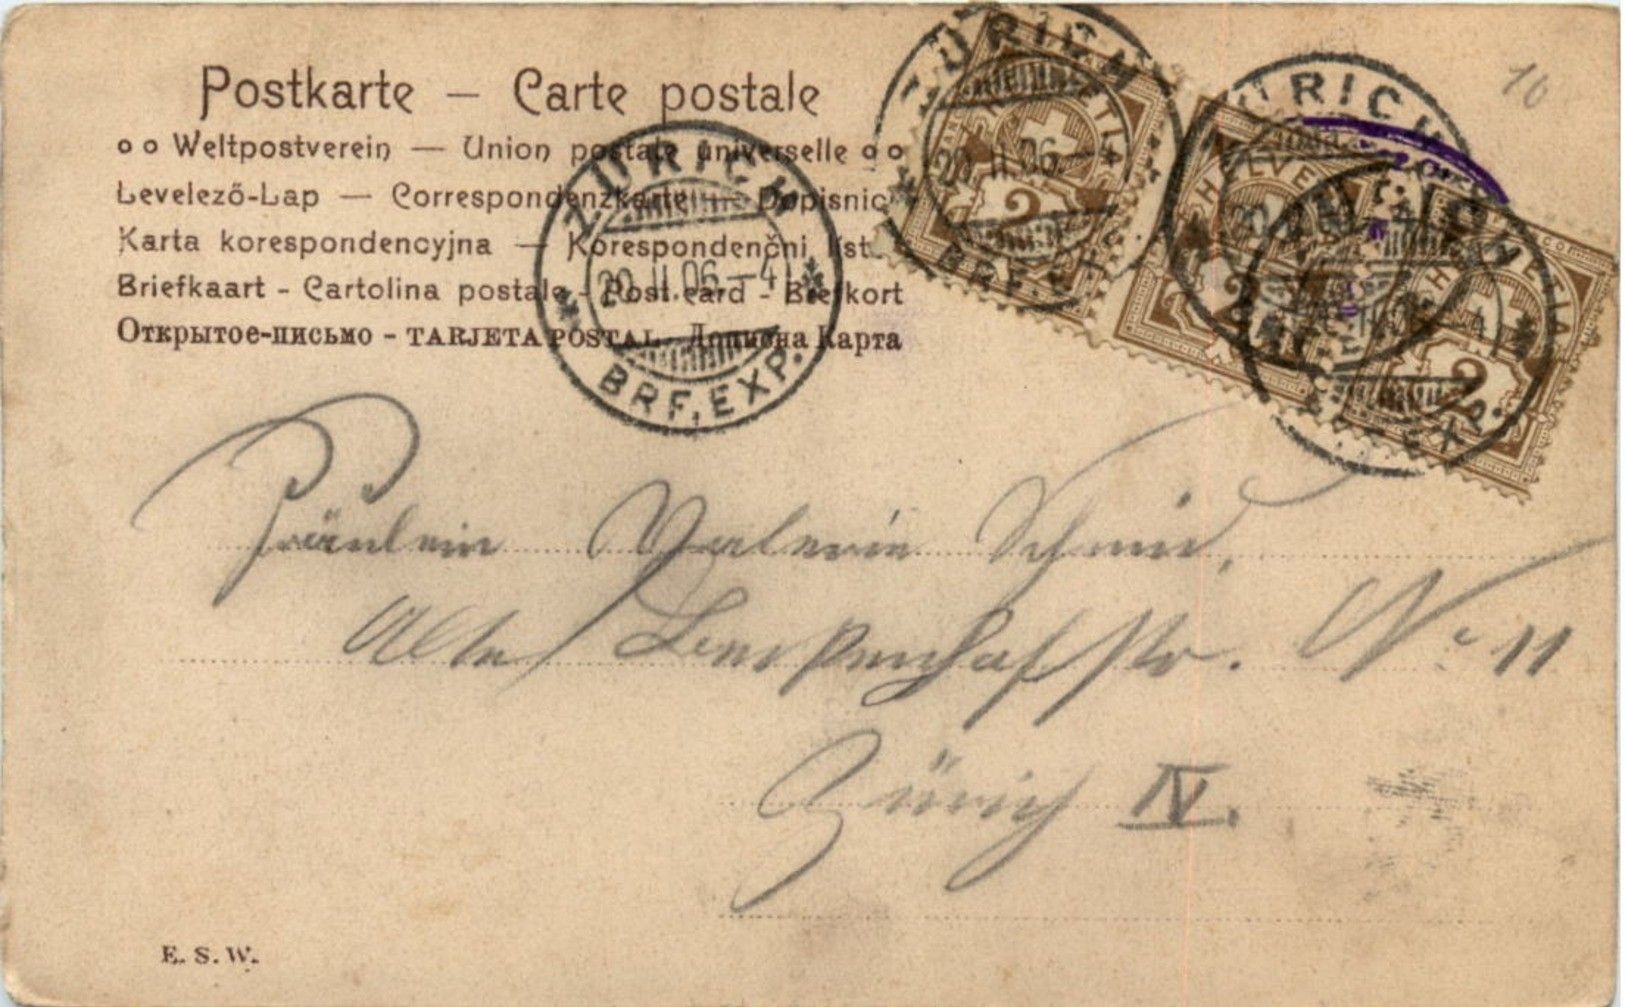 Postkarte — Carte postale
Weltpostverein — Union postale universelle
Levelező-Lap — Correspondenzkarte — Dopisnic
Karta korespondencyjna — Korespondenčni líst
Briefkaart - Cartolina postale - Post card - Brefkort
Открытое-письмо - TARJETA POSTAL - Дописна Карта
ZÜRICH
20.II.06.–4
BRF. EXP.
ZÜRICH
20.II.06.–
BRF. E
HELVETIA
2
ZÜRICH
HELVE
2
HELVETIA
2
EXP.
10
Fräulein Valerie Schmid,
Alte
str. No 11
Zürich IV.
E. S. W.